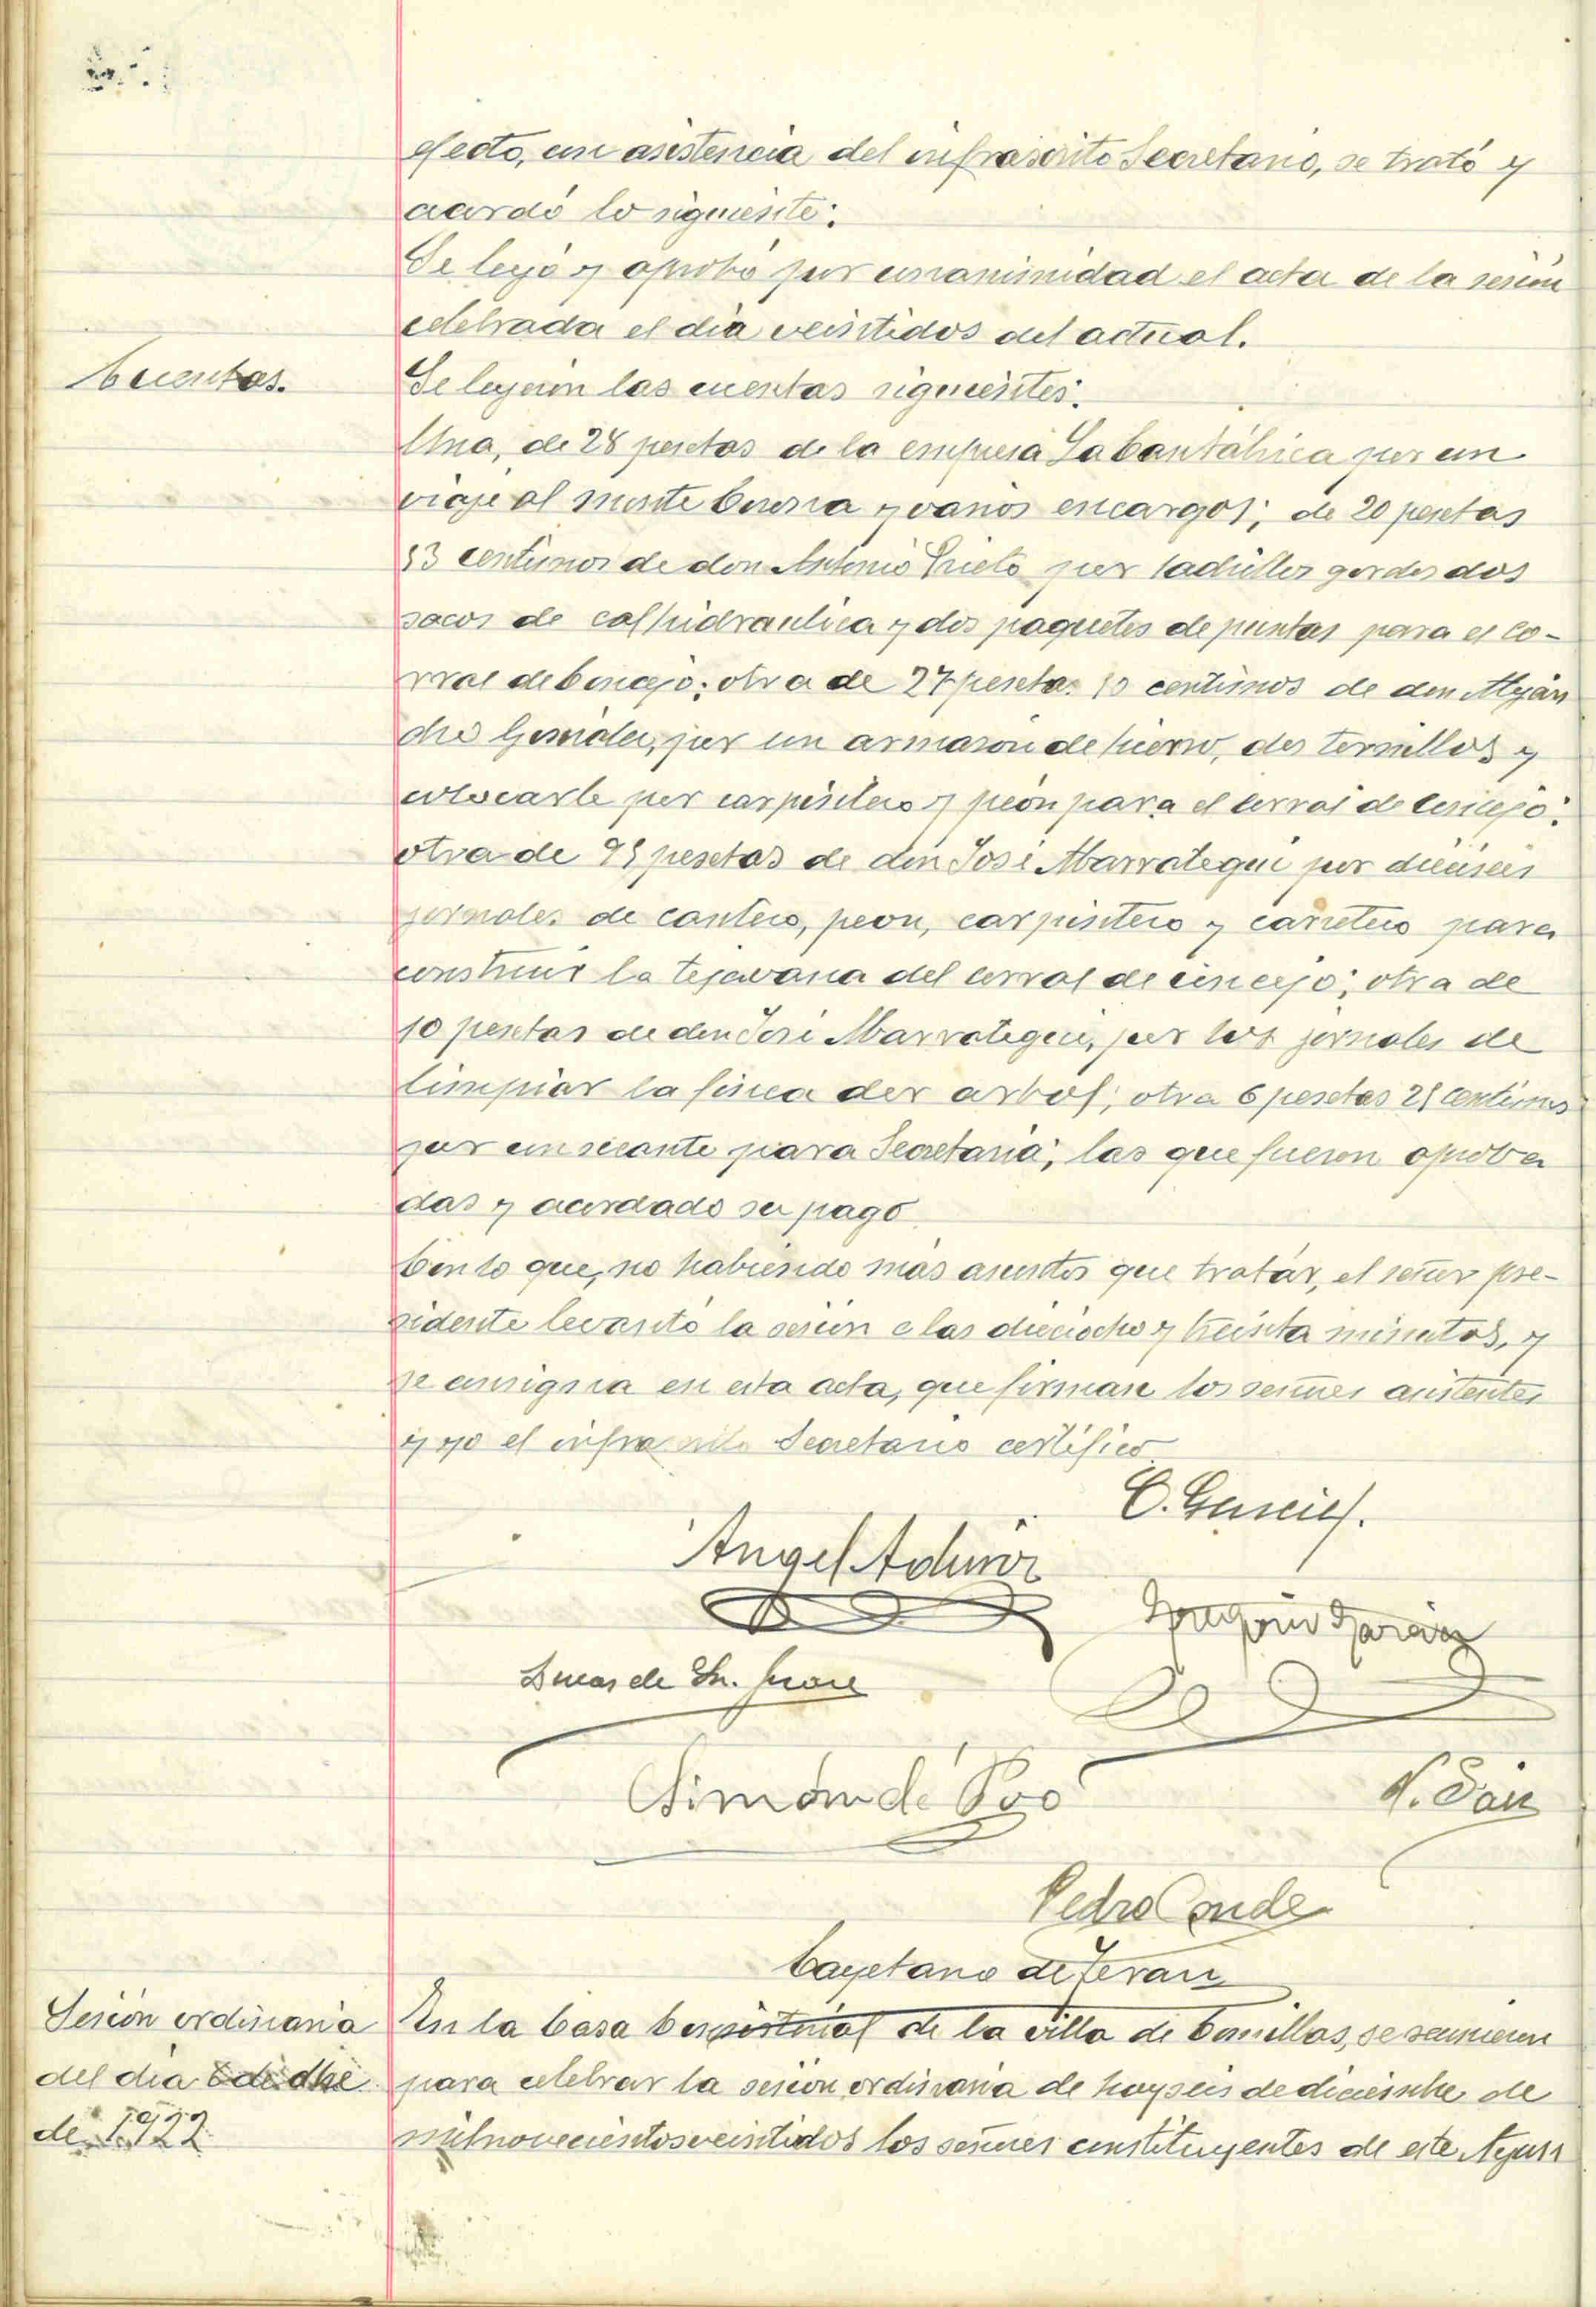 efecto, con asistencia del infrascrito Secretario, se trató y
acordó lo siguiente:
Se leyó y aprobó por unanimidad el acta de la sesión
celebrada el dia veintidos del actual.
Cuentas.
Se leyeron las cuentas siguientes:
Una, de 28 pesetas de la empresa La Cantábrica por un
viaje al monte Corona y varios encargos; de 20 pesetas
centimos de don Antonio Prieto por ladrillos gordos dos
sacos de cal hidraulica y dos paquetes de puntas para el co-
rral de concejo; otra de 27 pesetas centimos de don Alejan
dro por un armazon de hierro, dos tornillos y
colocarle por carpintero y peón para el corral de concejo;
otra de pesetas de don José Marrategui por dieciseis
jornales de cantero, peon, carpintero y carretero para
construir la tejavana del corral de concejo; otra de
10 pesetas de don José Marrategui, por los jornales de
limpiar la finca der arbol; otra 6 pesetas centimos
por un secante para Secretaria; las que fueron aproba
das y acordado su pago.
Con lo que, no habiendo más asuntos que tratar, el señor pre-
sidente levantó la sesión a las dieciocho y treinta minutos, y
se consigna en esta acta, que firman los señores asistentes
y yo el infrascrito Secretario certifico.
C. García.
Angel
Gregorio
Lucas de Sn. Juan
Simón de Poo
Pedro Conde
Cayetano de Teran
Sesión ordinaria
del dia 6 de dbe
de 1922
En la Casa Consistorial de la villa de Comillas, se reunieron
para celebrar la sesion ordinaria de hoy seis de diciembre de
mil novecientos veintidos los señores constituyentes de este Ayun